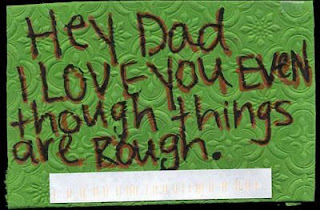 Hey Dad
I LOVE YOU EVEN
though things
are Rough.